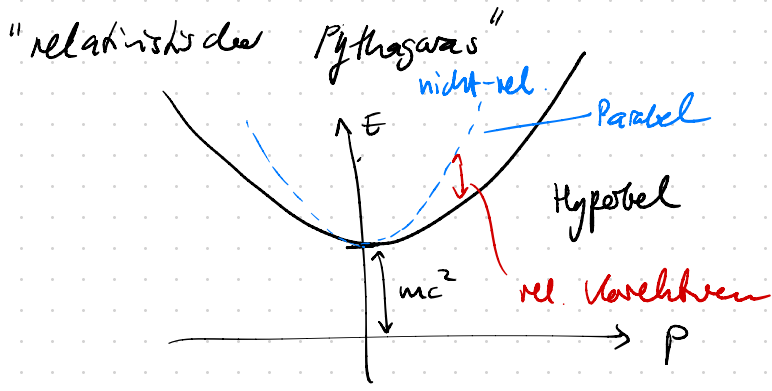 "relativistischer Pythagoras"
nicht-rel
Parabel
E
Hyperbel
mc²
rel. Korrekturen
p